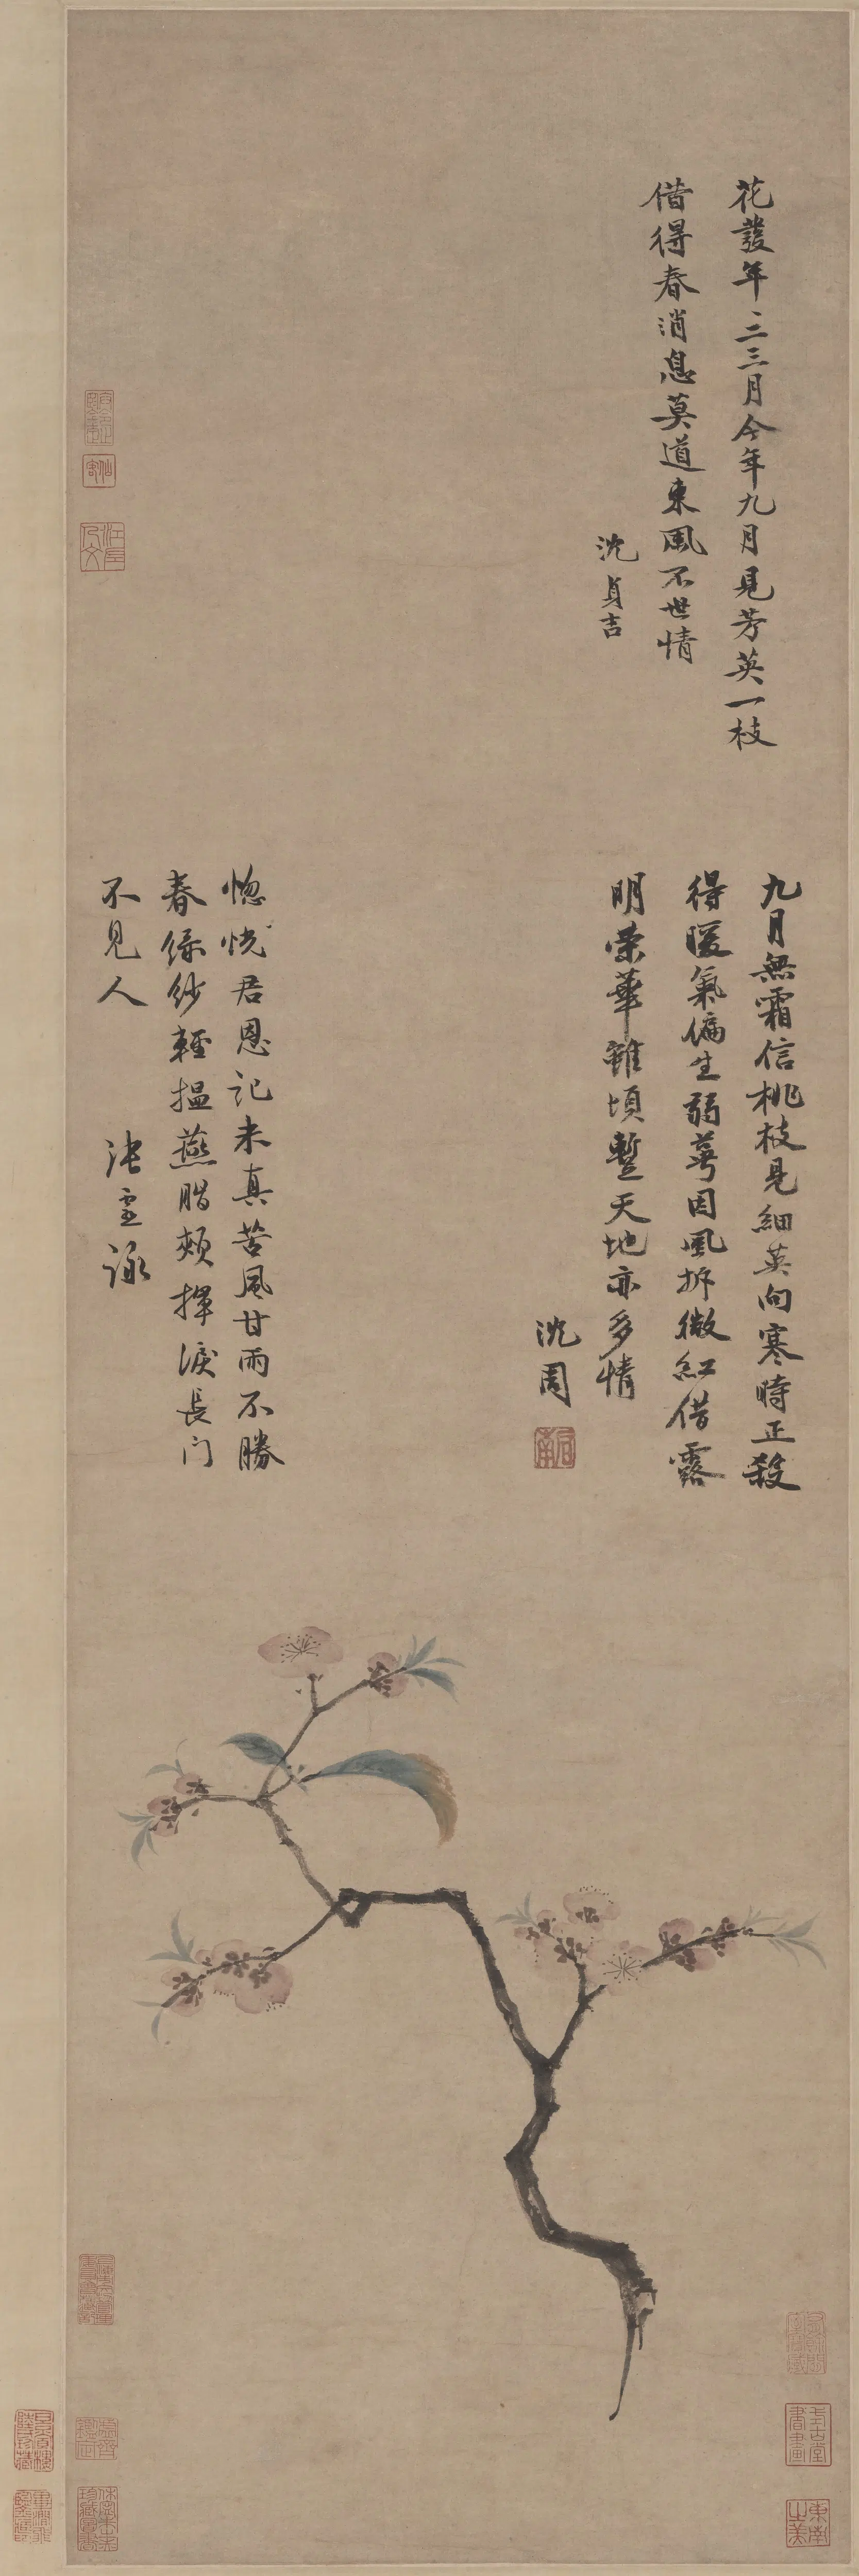 花發年年二三月今年九月見芳英一枝
借得春消息莫道東風不世情
沈貞吉
九月無霜信桃枝見細英向寒時正殺
得暖氣偏生弱萼因風拆微紅借露
明榮華雖頃蹔天地亦多情
沈周
啟南
惚恍君恩記未真苦風甘雨不勝
春綠紗輕揾燕脂頰揮淚長门
不見人
張靈詠
東南之美